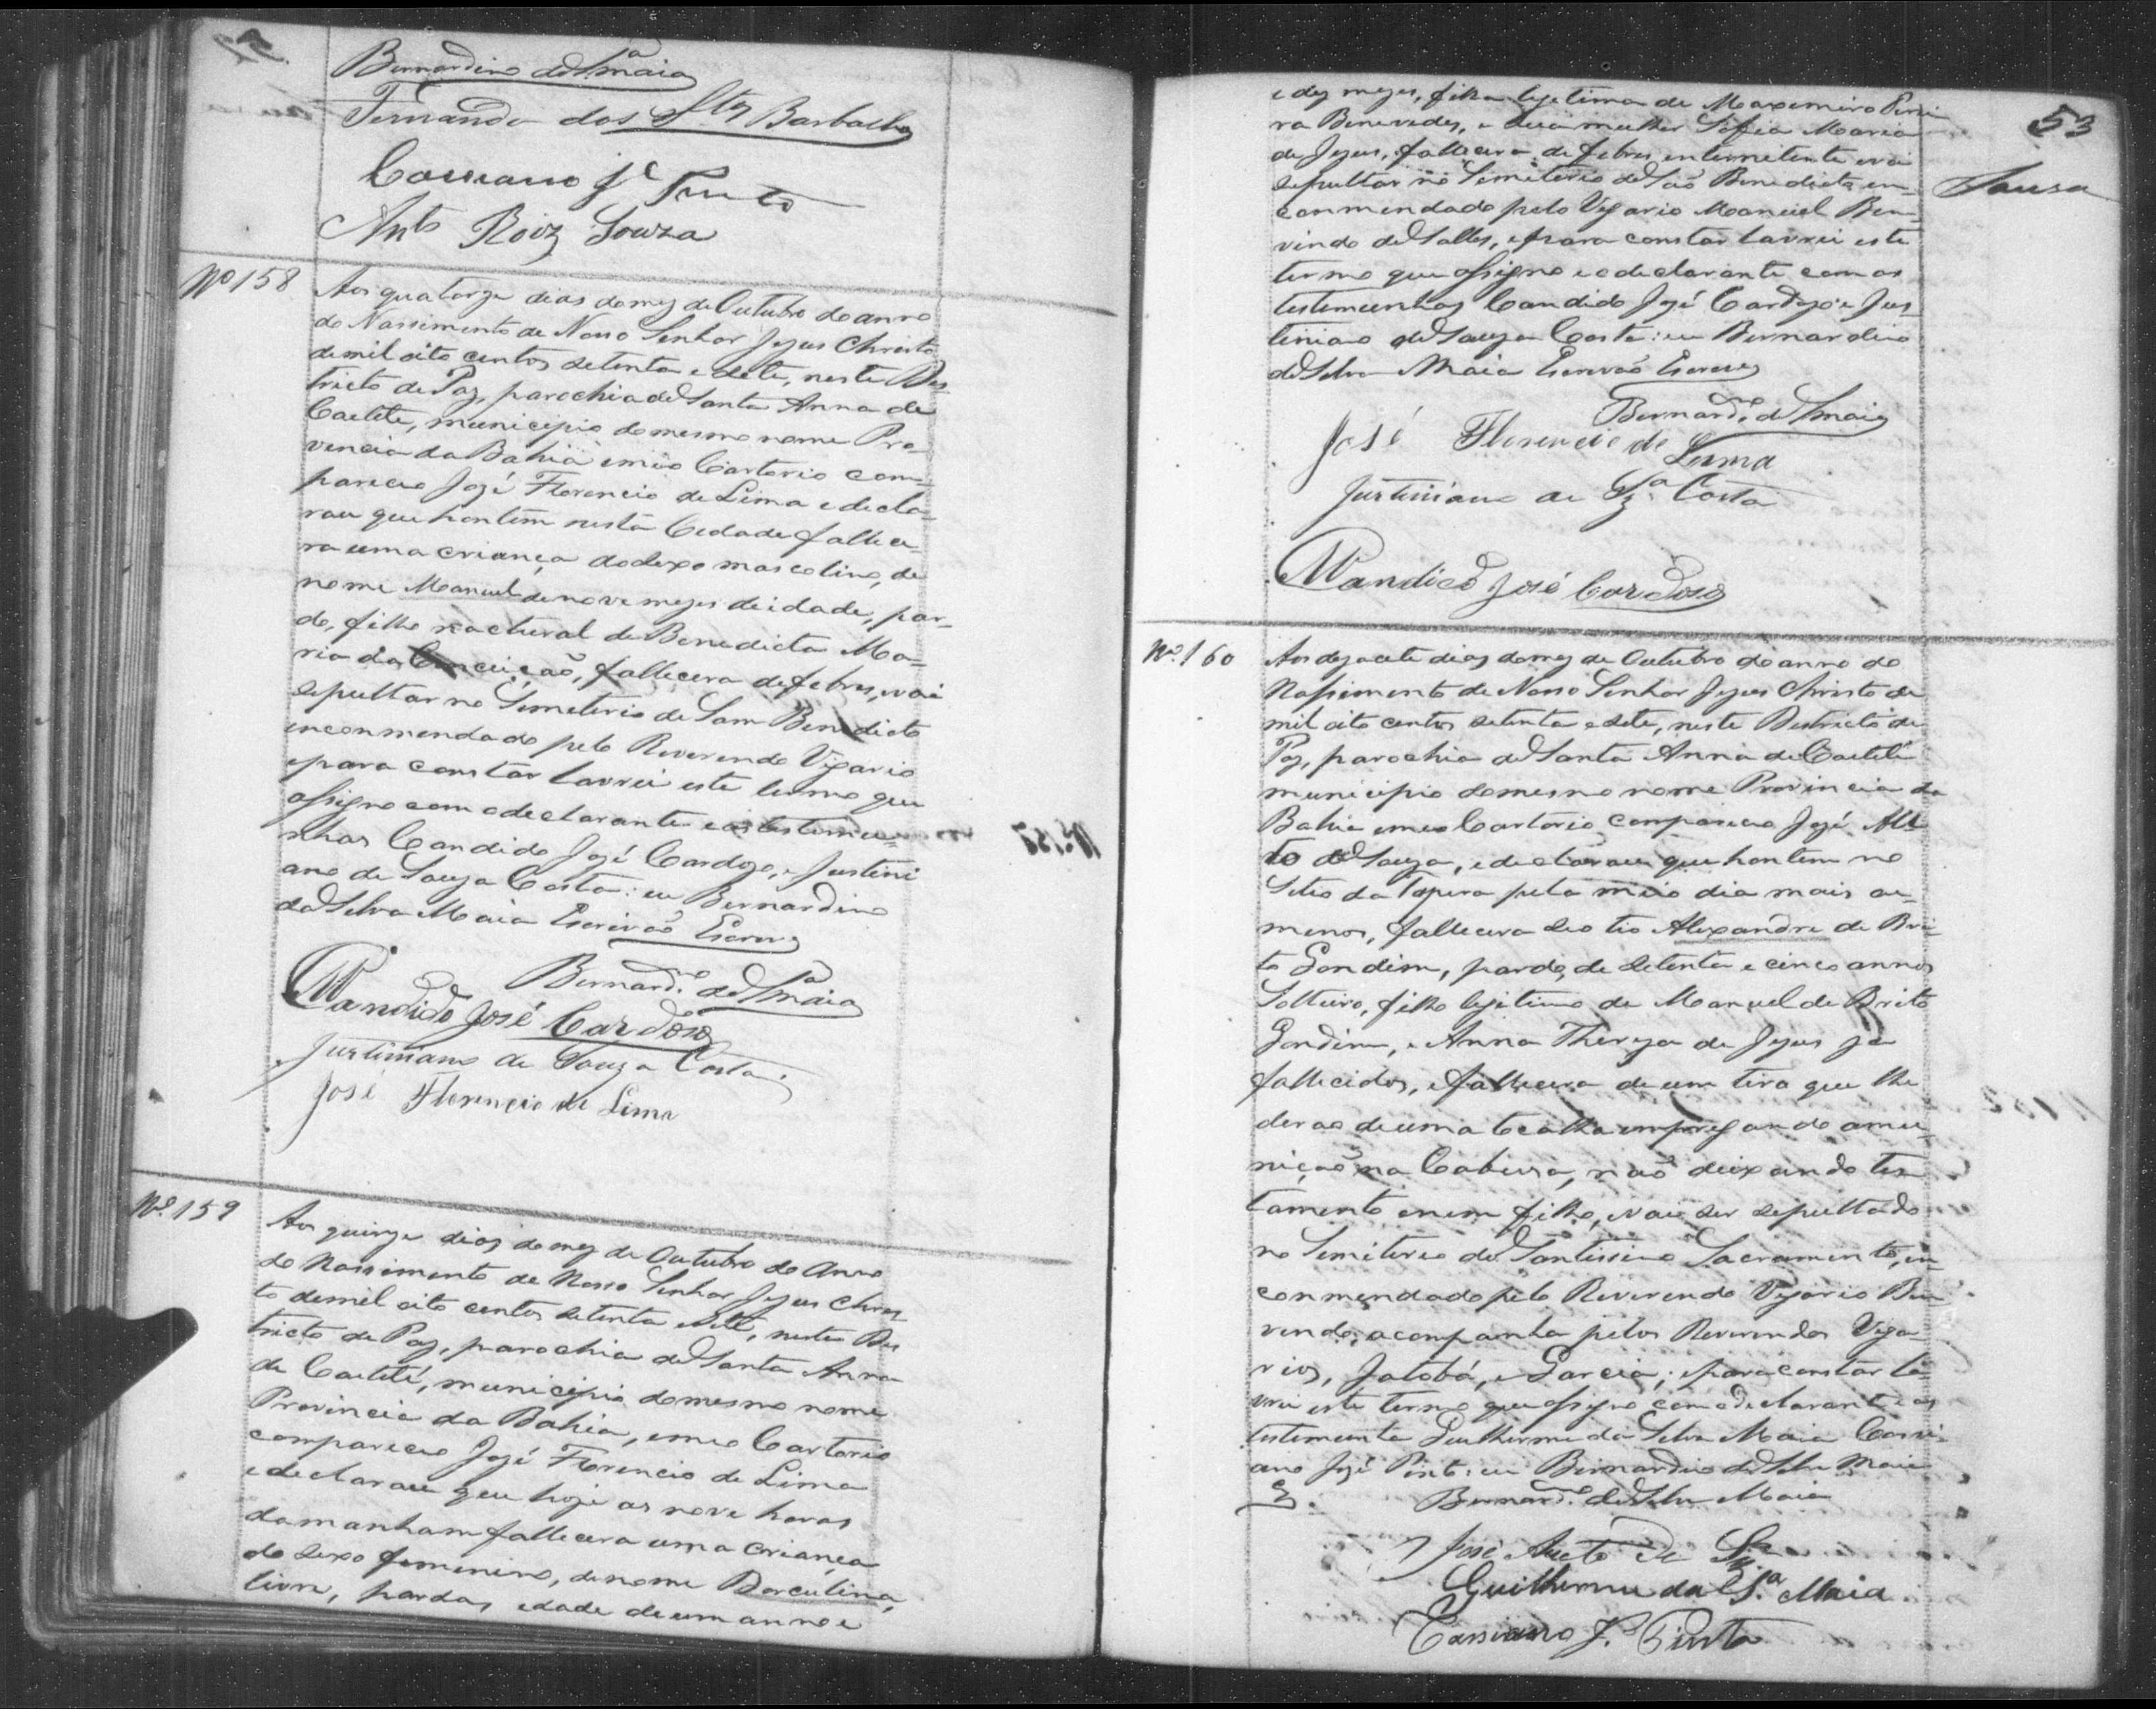 Bernardino da Sª Maia
Fernando dos Stos Barbalho
Cassiano Je Pinto
Anto Roiz Souza
Nº 158
Aos quatorze dias do mez de Outubro do anno
do Nassimento de Nosso Senhor Jezus Christo
de mil oito centos setenta e sete, neste Des
tricto de Paz, parochia de Santa Anna de
Caetité, municipio do mesmo nome Pro-
vencia da Bahia em meo Cartorio com-
pareceo Jozé Florencio de Lima e decla-
rou que hontem nesta Cedade fallece-
ra uma criança do sexo mascolino, de
nome Manuel de nove mezes de idade, par-
do, filho nactural de Benedicta Ma-
ria da Conceição, fallecera de febres, e vai
sepultar no Simeterio de Sam Benedicto
enconmendado pelo Reverendo Vigario
e para constar lavrei este termo que
assigno com o declarante e as testemu-
nhas Candido Jozé Cardozo, e Justini
ano de Souza Costa: eu Bernardino
da Selva Maia Escrivaõ Escrevy
Bernardno da Sª Maia
Candido José Cardoso
Justiniano de Souza Costa
José Florencio de Lima
Nº 159
Aos quinze dias do mez de Outubro do Anno
do Nassimento de Nosso Senhor Jezus Chris-
to de mil oito centos setenta e sete, neste Des
tricto de Paz, parochia de Santa Anna
de Caetité, municipio do mesmo nome
Provincia da Bahia, em meo Cartorio
compareceo Jozé Florencio de Lima
e declarou que hoje as nove horas
da manham fallecera uma criança
do sexo femenino, de nome Dorculina,
livre, parda, edade de um anno e
53
Sousa
e dez mezes, filha legetima de Maxemiro Perei
ra Benevedes, e sua mulher Sofia Maria
de Jezus, fallecera de febres entermetente e vai
sepultar no Simeterio de Saõ Benedicto en-
conmendado pelo Vigario Manuel Ben-
vindo de Salles, e para constar lavrei este
termo que assigno e o declarante com as
testemunhas Candido Jozé Cardozo e Jus-
tiniano de Souza Costa: eu Bernardino
da Selva Maia Escrivaõ Escrevy
Bernardno da Sª Maia
José Florencio de Lima
Justiniano de Sza Costa
Candido José Cardoso
Nº 160
Aos dezacete dias do mez de Outubro do anno do
Nassimento de Nosso Senhor Jezus Christo de
mil oito centos setenta e sete, neste Destricto de
Paz, parochia de Santa Anna de Caetité
municipio do mesmo nome Provincia da
Bahia em meo Cartorio compareceo Jozé
to de Souza, e declarou que hontem no
Setio da Tapera pela meio dia mais ou
menos, fallecera seo tio Alexandre de Bri-
to Gondim, pardo, de setenta e cinco annos
Solteiro, filho legitimo de Manuel de Brito
Gondim, e Anna Thereza de Jezus ja
fallecidos, e fallecera de um tiro que lhe
deraõ de uma tocalha empregando a mu-
niçaõ na Cabeça, naõ deixando tes-
tamento e nem filho, e vai ser sepultado
no Simiterio do Santissimo Sacramento, en
conmendado pelo Reverendo Vigario Ben
vendo, acompanha pelos Reverendos Viga-
rios, Jatobá, e Garcia; e para constar la-
vrei este termo que assigno com o declarante e as
testemunta Guilherme da Selva Maia Cassi-
ano Jozé Pinto: eu Bernardino da Selva Maia
E.
Bernardno da Selva Maia
José Aleto de Sza
Guilherme da Sª Maia
Cassiano J. Pinto